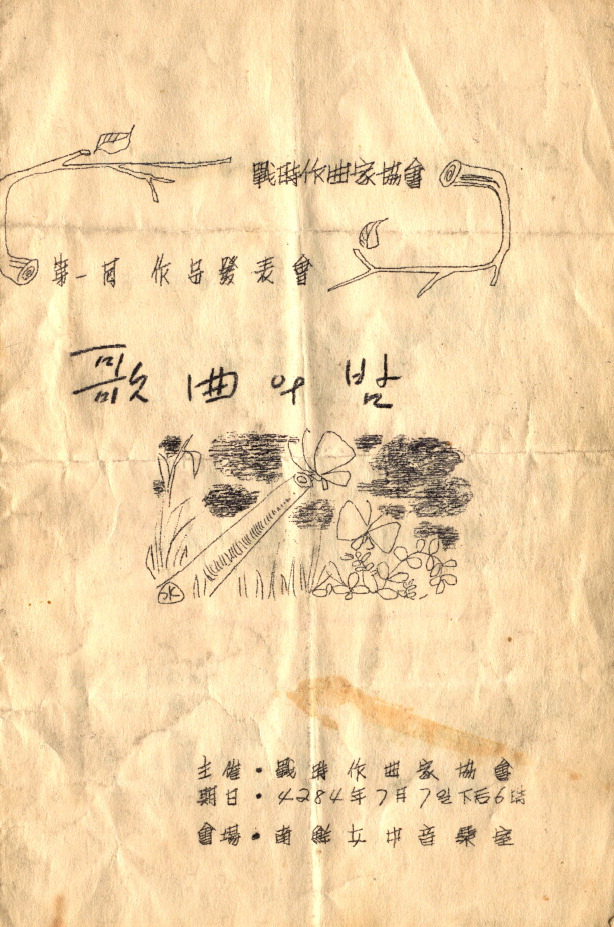 戰時作曲家協會
第一回 作品發表會
歌曲의 밤
主催·戰時作曲家協會
期日·4284年7月7日下后6時
會場·南鮮女中音樂室